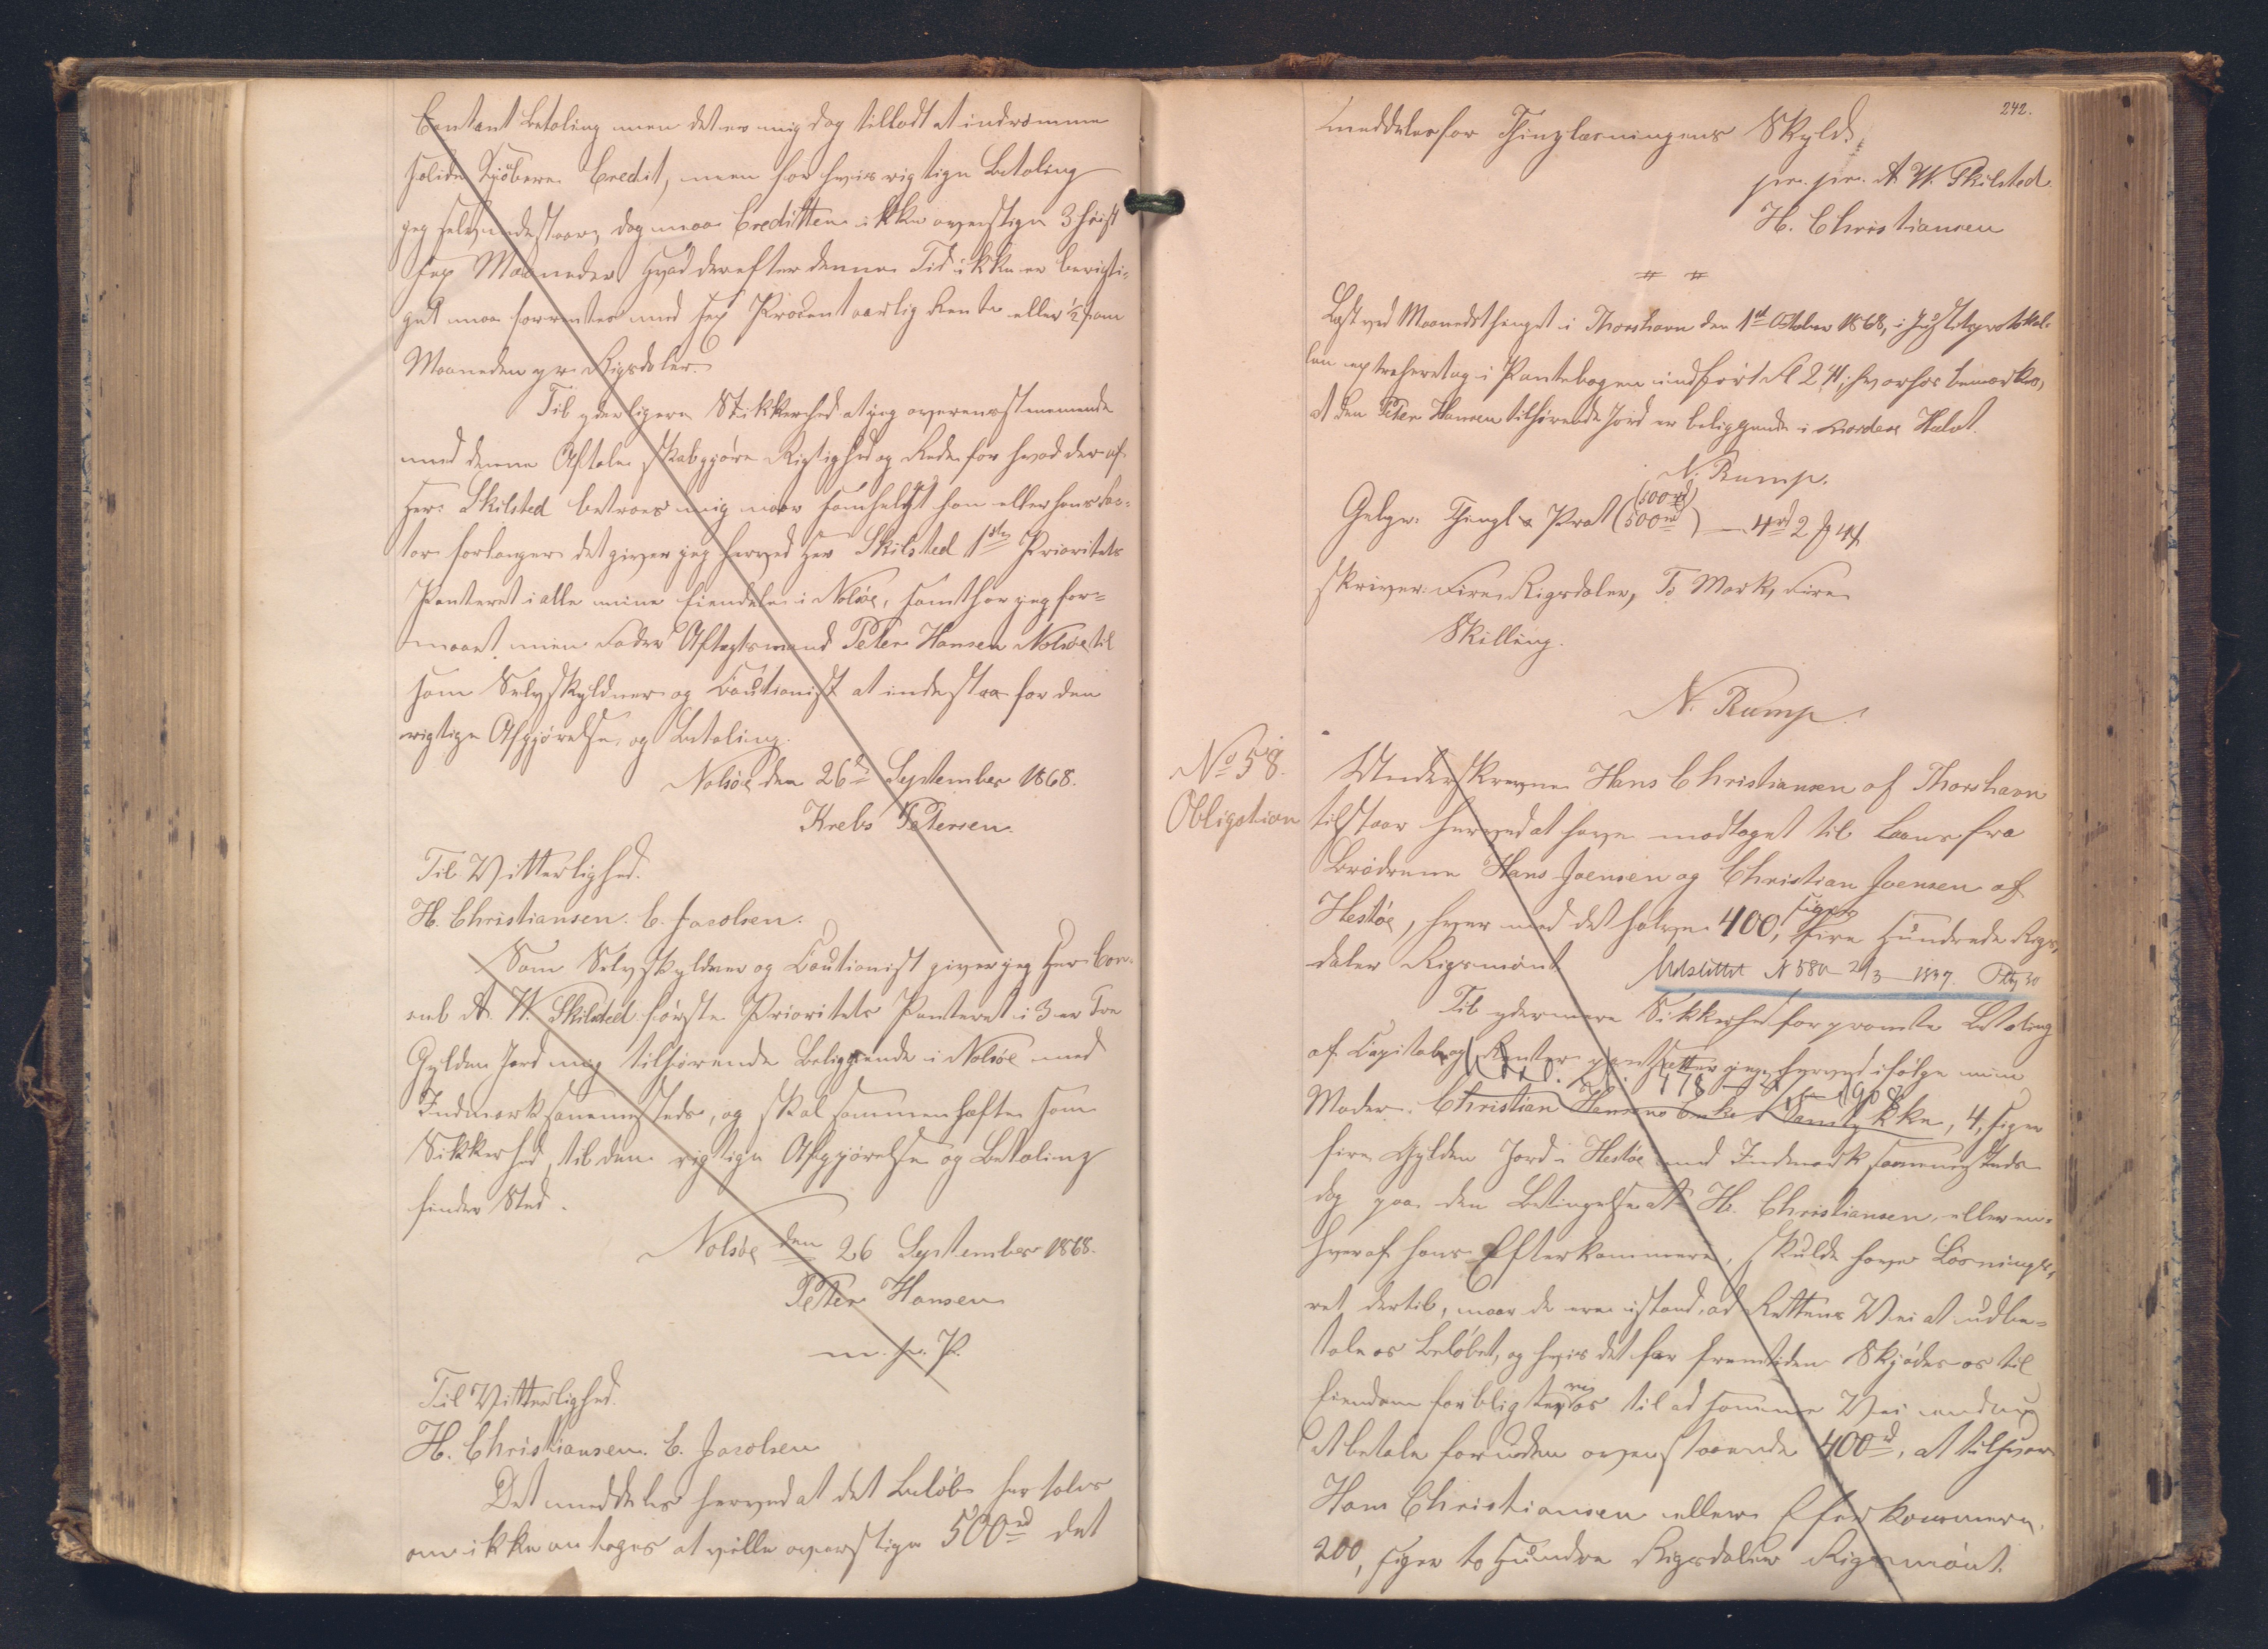 Contant Betaling men det er mig dog tilladt at indrømme
solide Kjøbere Credit, men for hvis rigtige Betaling
jeg selv indestaaer, dog maa Creditten ikke overstige 3 høist
sex Maaneder. Hvad der efter denne Tid ikke er berigti-
get maa forrentes med sex Procent aarlig Rente eller ½ s om
Maaneden pr. Rigsdaler.
Til yderligere Sikkerhed at jeg overensstemmende
med denne Aftale skal gjøre Rigtighed og Rede for hvad der af
Herr Skilsted betroes mig naar somhelst han eller hans Fac-
tor forlanger det giver jeg herved Herr Skilsted 1ste Prioritets
Panteret i alle mine Eiendele i Nolsøe, samt har jeg for-
maaet min Fader Aftægtsmand Peter Hansen Nolsøe til
som Selvskyldner og Cautionist at indestaa for den
rigtige Afgjørelse og Betaling.
Nolsøe den 26de September 1868.
Krebs Petersen.
Til Vitterlighed.
H. Christiansen. C. Jacobsen.
Som Selvskyldner og Cautionist giver jeg Herr Con-
sul A. W. Skilsted første Prioritets Panteret i 3 er Tre
Gylden Jord mig tilhørende Beliggende i Nolsøe med
Indmark sammesteds, og skal sammen hæfte som
Sikkerhed, til den rigtige Afgjørelse og Betaling
finder Sted.
Nolsøe den 26 September 1868.
Peter Hansen
m. f. P.
Til Vitterlighed
H. Christiansen. C. Jacobsen
Det meddeles herved at det Beløb her tales
om ikke antages at ville overstige 500rd det
242.
meddeles for Thinglæsningens Skyld.
pr. pr. A. W. Skilsted.
H. Christiansen
Læst ved Maanedsthinget i Thorshavn den 1st October 1868, i Justitsprotokol-
len extraheret og i Pantebogen indført fl 241; hvorhos bemærkes,
at den Peter Hansen tilhørende Jord er beliggende i Nordere Halvt.
N. Rump.
Gebyr: Thingl & Prot (500rd)(500rd) — 4rd 2 ꝟ 4 s
skriver: Fire Rigsdaler, To Mark, Fire
Skilling.
N. Rump.
No 58.
Obligation
Underskrevne Hans Christiansen af Thorshavn
tilstaar herved at have modtaget til Laans fra
Brødrene Hans Joensen og Christian Joensen af
Hestøe, hver med det halve 400, siger fire Hundrede Rigs-
daler Rigsmønt
Udslettet N 580 2/3 1937
Til ydermere Sikkerhed for promte Betaling
af Capital og Renter pantsætter jeg herved ifølge min
Moder Christian Hansens Enke s Samtykke, 4, siger
fire Gylden Jord i Hestøe med Indmark sammesteds
dog paa den Betingelse at H. Christiansen eller en-
hver af hans Efterkommere, skulde have Løsnings-
ret dertil, naar de ere istand, ad Rettens Vei at udbe-
tale os Beløbet, og hvis det for fremtiden Skjødes os til
Eiendom forbligter vi os til ad samme Vei endnu
at betale foruden ovenstaaende 400rd, at tilsvare
Hans Christiansen eller Efterkommere
200, siger to Hundre Rigsdaler Rigsmønt.